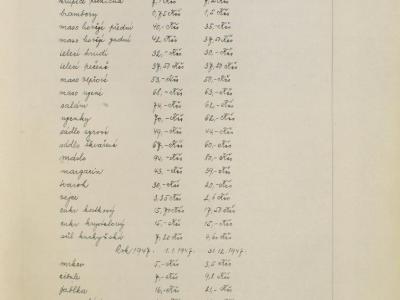 krupice pšeničná 7.- Kčs 7,20 Kčs
brambory 0,75 Kčs 1,5 Kčs
maso hovězí přední 40,- Kčs 35,- Kčs
maso hovězí zadní 42,- Kčs 37,50 Kčs
telecí hrudí 32,- Kčs 30.- Kčs
telecí pečeně 37,50 Kčs 37,50 Kčs
maso vepřové 53.- Kčs 50.- Kčs
maso uzené 68.- Kčs 63.- Kčs
salám 74.- Kčs 62.- Kčs
uzenky 70.- Kčs 62,- Kčs
sádlo syrové 49.- Kčs 44.- Kčs
sádlo škvařené 67.- Kčs 60.- Kčs
máslo 94.- Kčs 80.- Kčs
margarin 43.- Kčs 39.- Kčs
tvaroh 30.- Kčs 20.- Kčs
vejce 3.35 Kčs 2,6 Kčs
cukr kostkový 15,70 Kčs 17,50 Kčs
cukr krystalový 15,- Kčs 15,- Kčs
sůl kuchyňská 7,20 Kčs 4.60 Kčs
Rok 1947. 1.1.1947. 31.12.1947.
mrkev 5,- Kčs 3,5 Kčs
cibule 7,- Kčs 9,8 Kčs
jablka 16,- Kčs 21.- Kčs